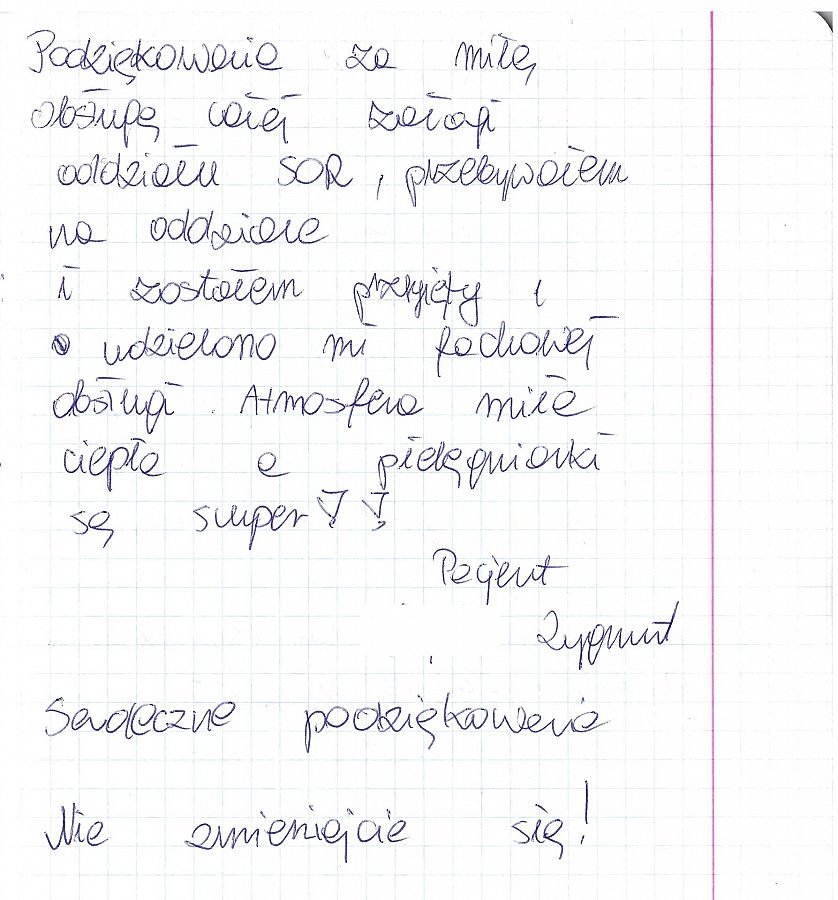 Podziękowanie za miłą
obsługę całej załogi
oddziału SOR, przebywałem
na oddziale
i zostałem przyjęty i
udzielono mi fachowej
obsługi. Atmosfera miła
ciepła a pielęgniarki
są super!!
Pacjent
Zygmunt
Serdeczne podziękowania
Nie zmieniajcie się!